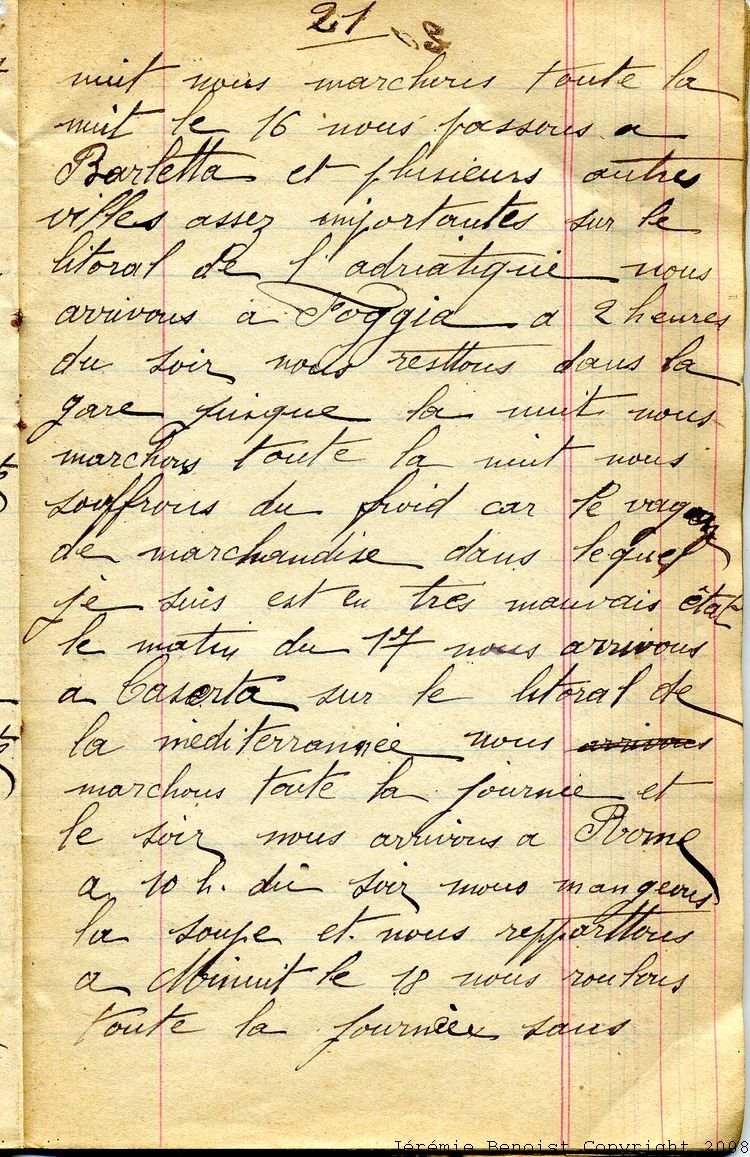 21
nuit nous marchons toute la
nuit le 16 nous passons a
Barletta et plusieurs autres
villes assez importantes sur le
litoral de l'adriatique nous
arrivons a Foggia a 2 heures
du soir nous resttons dans la
gare jusque la nuit nous
marchons toute la nuit nous
souffrons du froid car le vagon
de marchandise dans lequel
je suis est en tres mauvais état
le matin du 17 nous arrivons
a Caserta sur le litoral de
la mediterrannée nous arrivons
marchons toute la journée et
le soir nous arrivons a Rome
a 10 h. du soir nous mangeons
la soupe et nous repparttons
a Minuit le 18 nous roulons
toute la journéee sans
Jérémie Benoist Copyright 2008